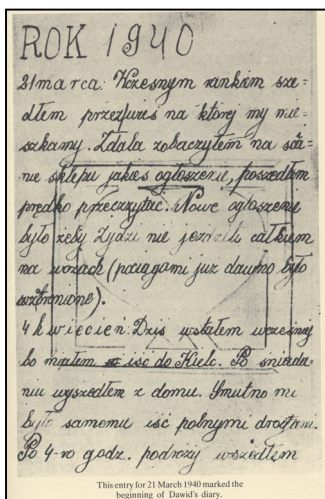 ROK 1940
21 marca. Wczesnym rankiem sze-
dłem przez wieś na której my mie-
szkamy. Zdala zobaczyłem na scia-
nie sklepu jakies ogłoszenie, poszedłem
prędko przeczytać. Nowe ogłoszenie
było żeby Żydzi nie jeździli całkiem
na wozach (pociągami już dawno było
wzbronione).
4 kwiecień Dziś wstałem wcześniej
bo miałem iść do Kielc. Po śniada-
niu wyszedłem z domu. Smutno mi
było samemu iść polnymi drogami.
Po 4-ro godz. podróży wszedłem
This entry for 21 March 1940 marked the
beginning of Dawid's diary.